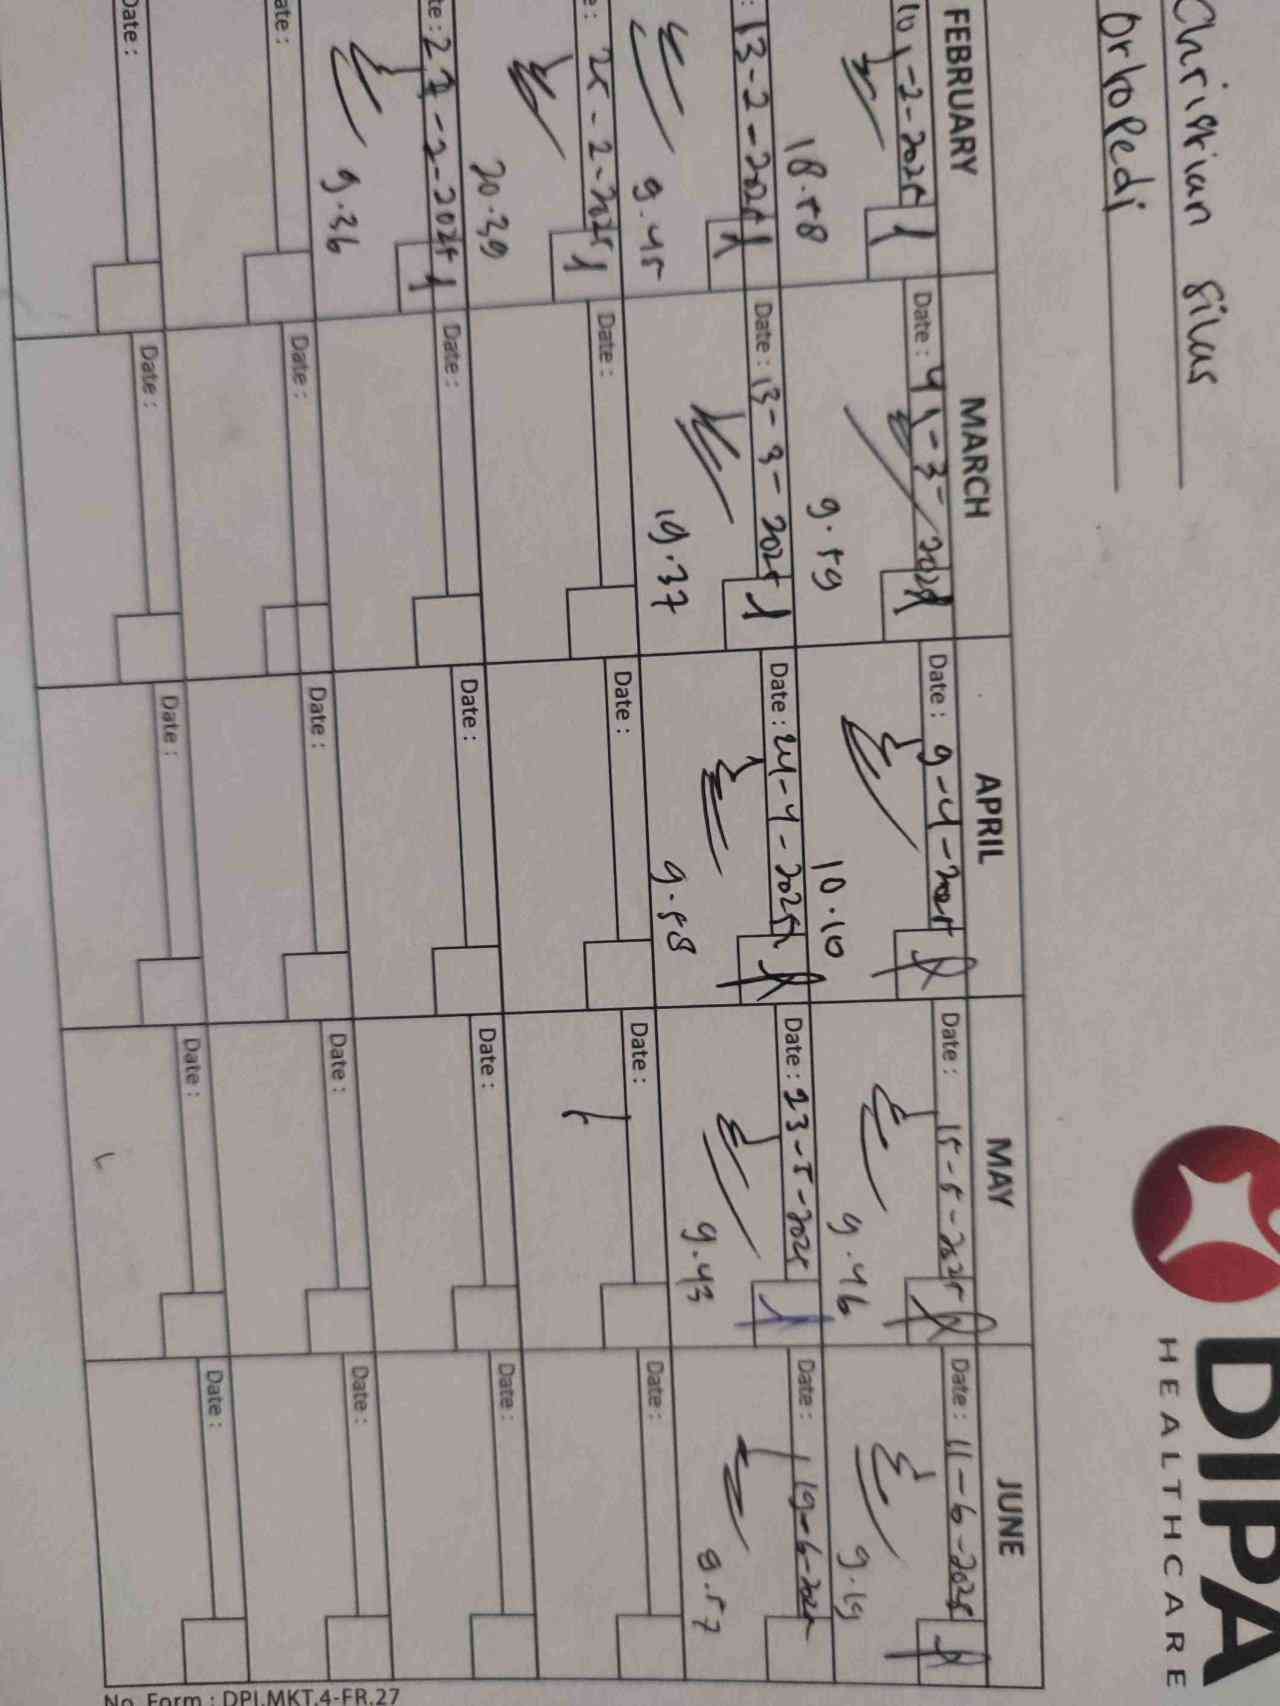 Christian Silas
Ortopedi
DIPA
HEALTHCARE
FEBRUARY MARCH APRIL MAY JUNE
10-2-2025 Date : 4-3-2025 Date : 9-4-2025 Date : 15-5-2025 Date : 11-6-2025
18.58 9.59 10.10 9.46 9.19
: 13-2-2025 Date : 13-3-2025 Date : 24-4-2025 Date : 23-5-2025 Date : 19-6-2025
9.45 19.37 9.58 9.43 9.57
e : 25-2-2025 Date : Date : Date : Date :
20.39
te : 27-2-2025 Date : Date : Date : Date :
9.36
ate : Date : Date : Date : Date :
Date : Date : Date : Date : Date :
No. Form : DPI.MKT.4-FR.27